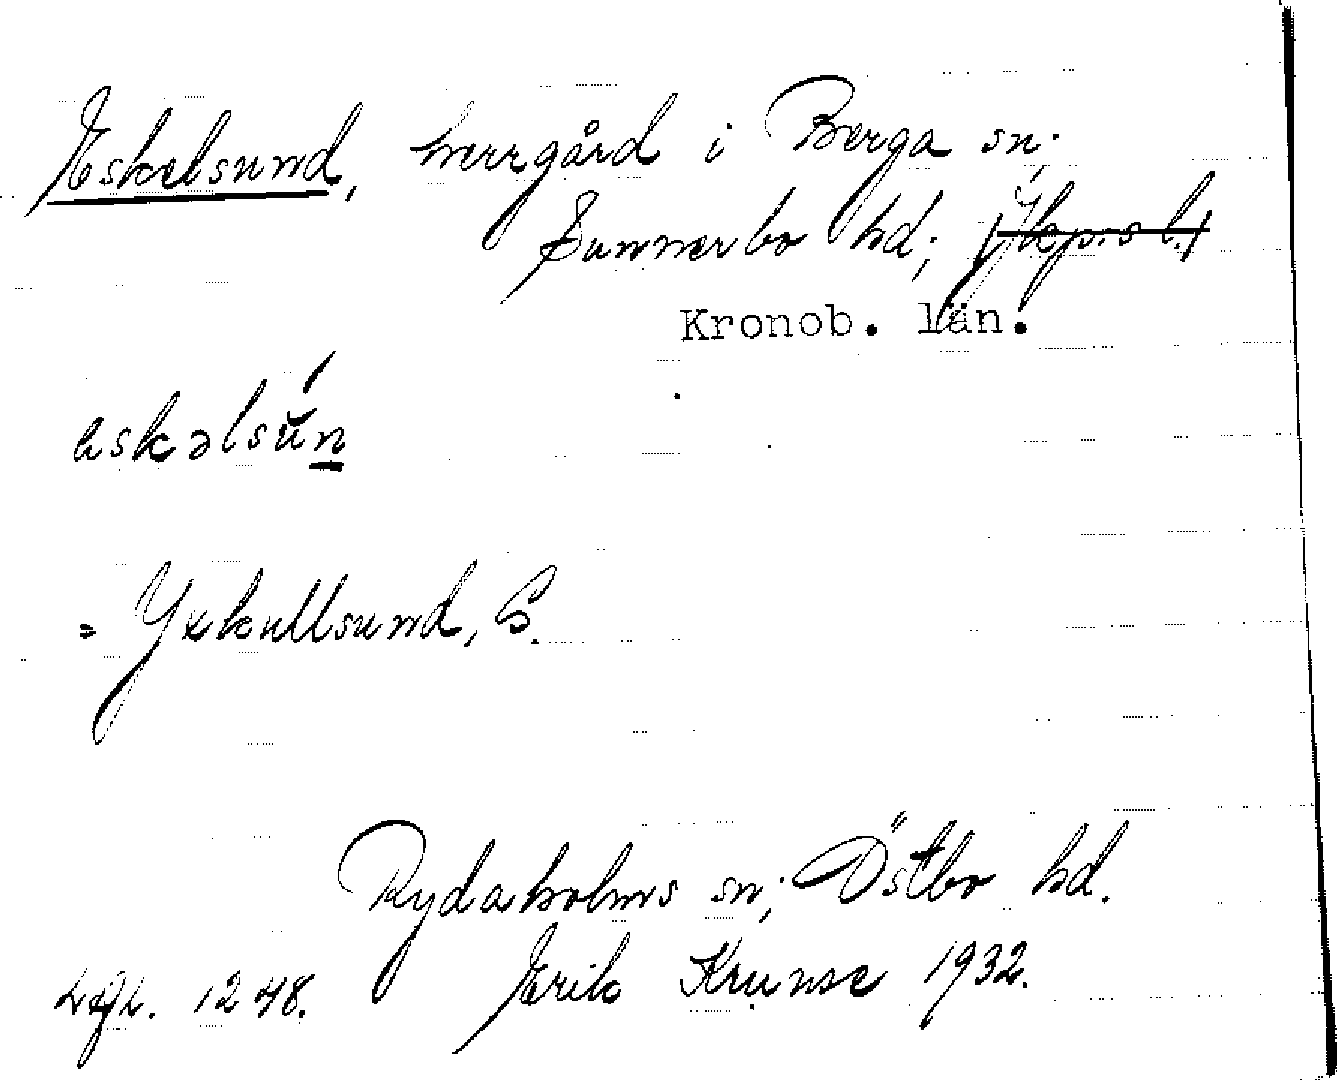 Eskelsund, herrgård i Berga sn;
Sunnerbo hd; (Jkp:s l.)
Kronob. län.
eskəlsún
= Yxkullsund, S.
Rydaholms sn; Östbo hd.
1248. Erik Krunse 1932.